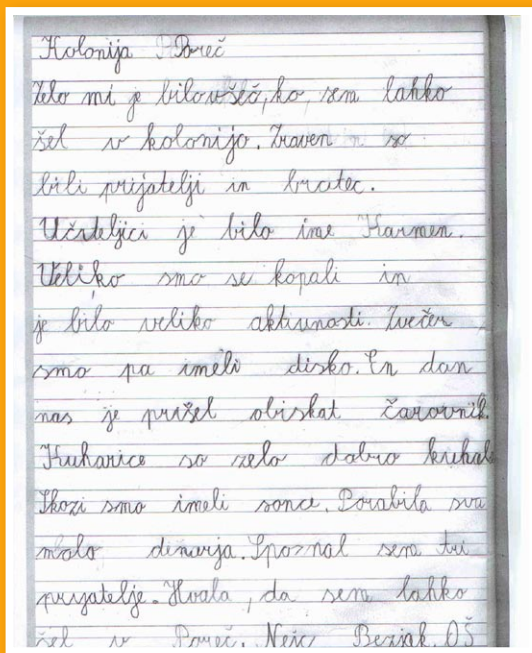 Kolonija Poreč
Zelo mi je bilo všeč, ko, sem lahko
šel v kolonijo. Zraven so
bili prijatelji in bratec.
Učiteljici je bilo ime Karmen.
Veliko smo se kopali in
je bilo veliko aktivnosti. Zvečer
smo pa imeli disko. En dan
nas je prišel obiskat čarovnik.
Kuharice so zelo dobro kuhale
Skozi smo imeli sonce. Porabila sva
malo denarja. Spoznal sem tri
prijatelje. Hvala, da sem lahko
šel v Poreč. Bezjak, OŠ